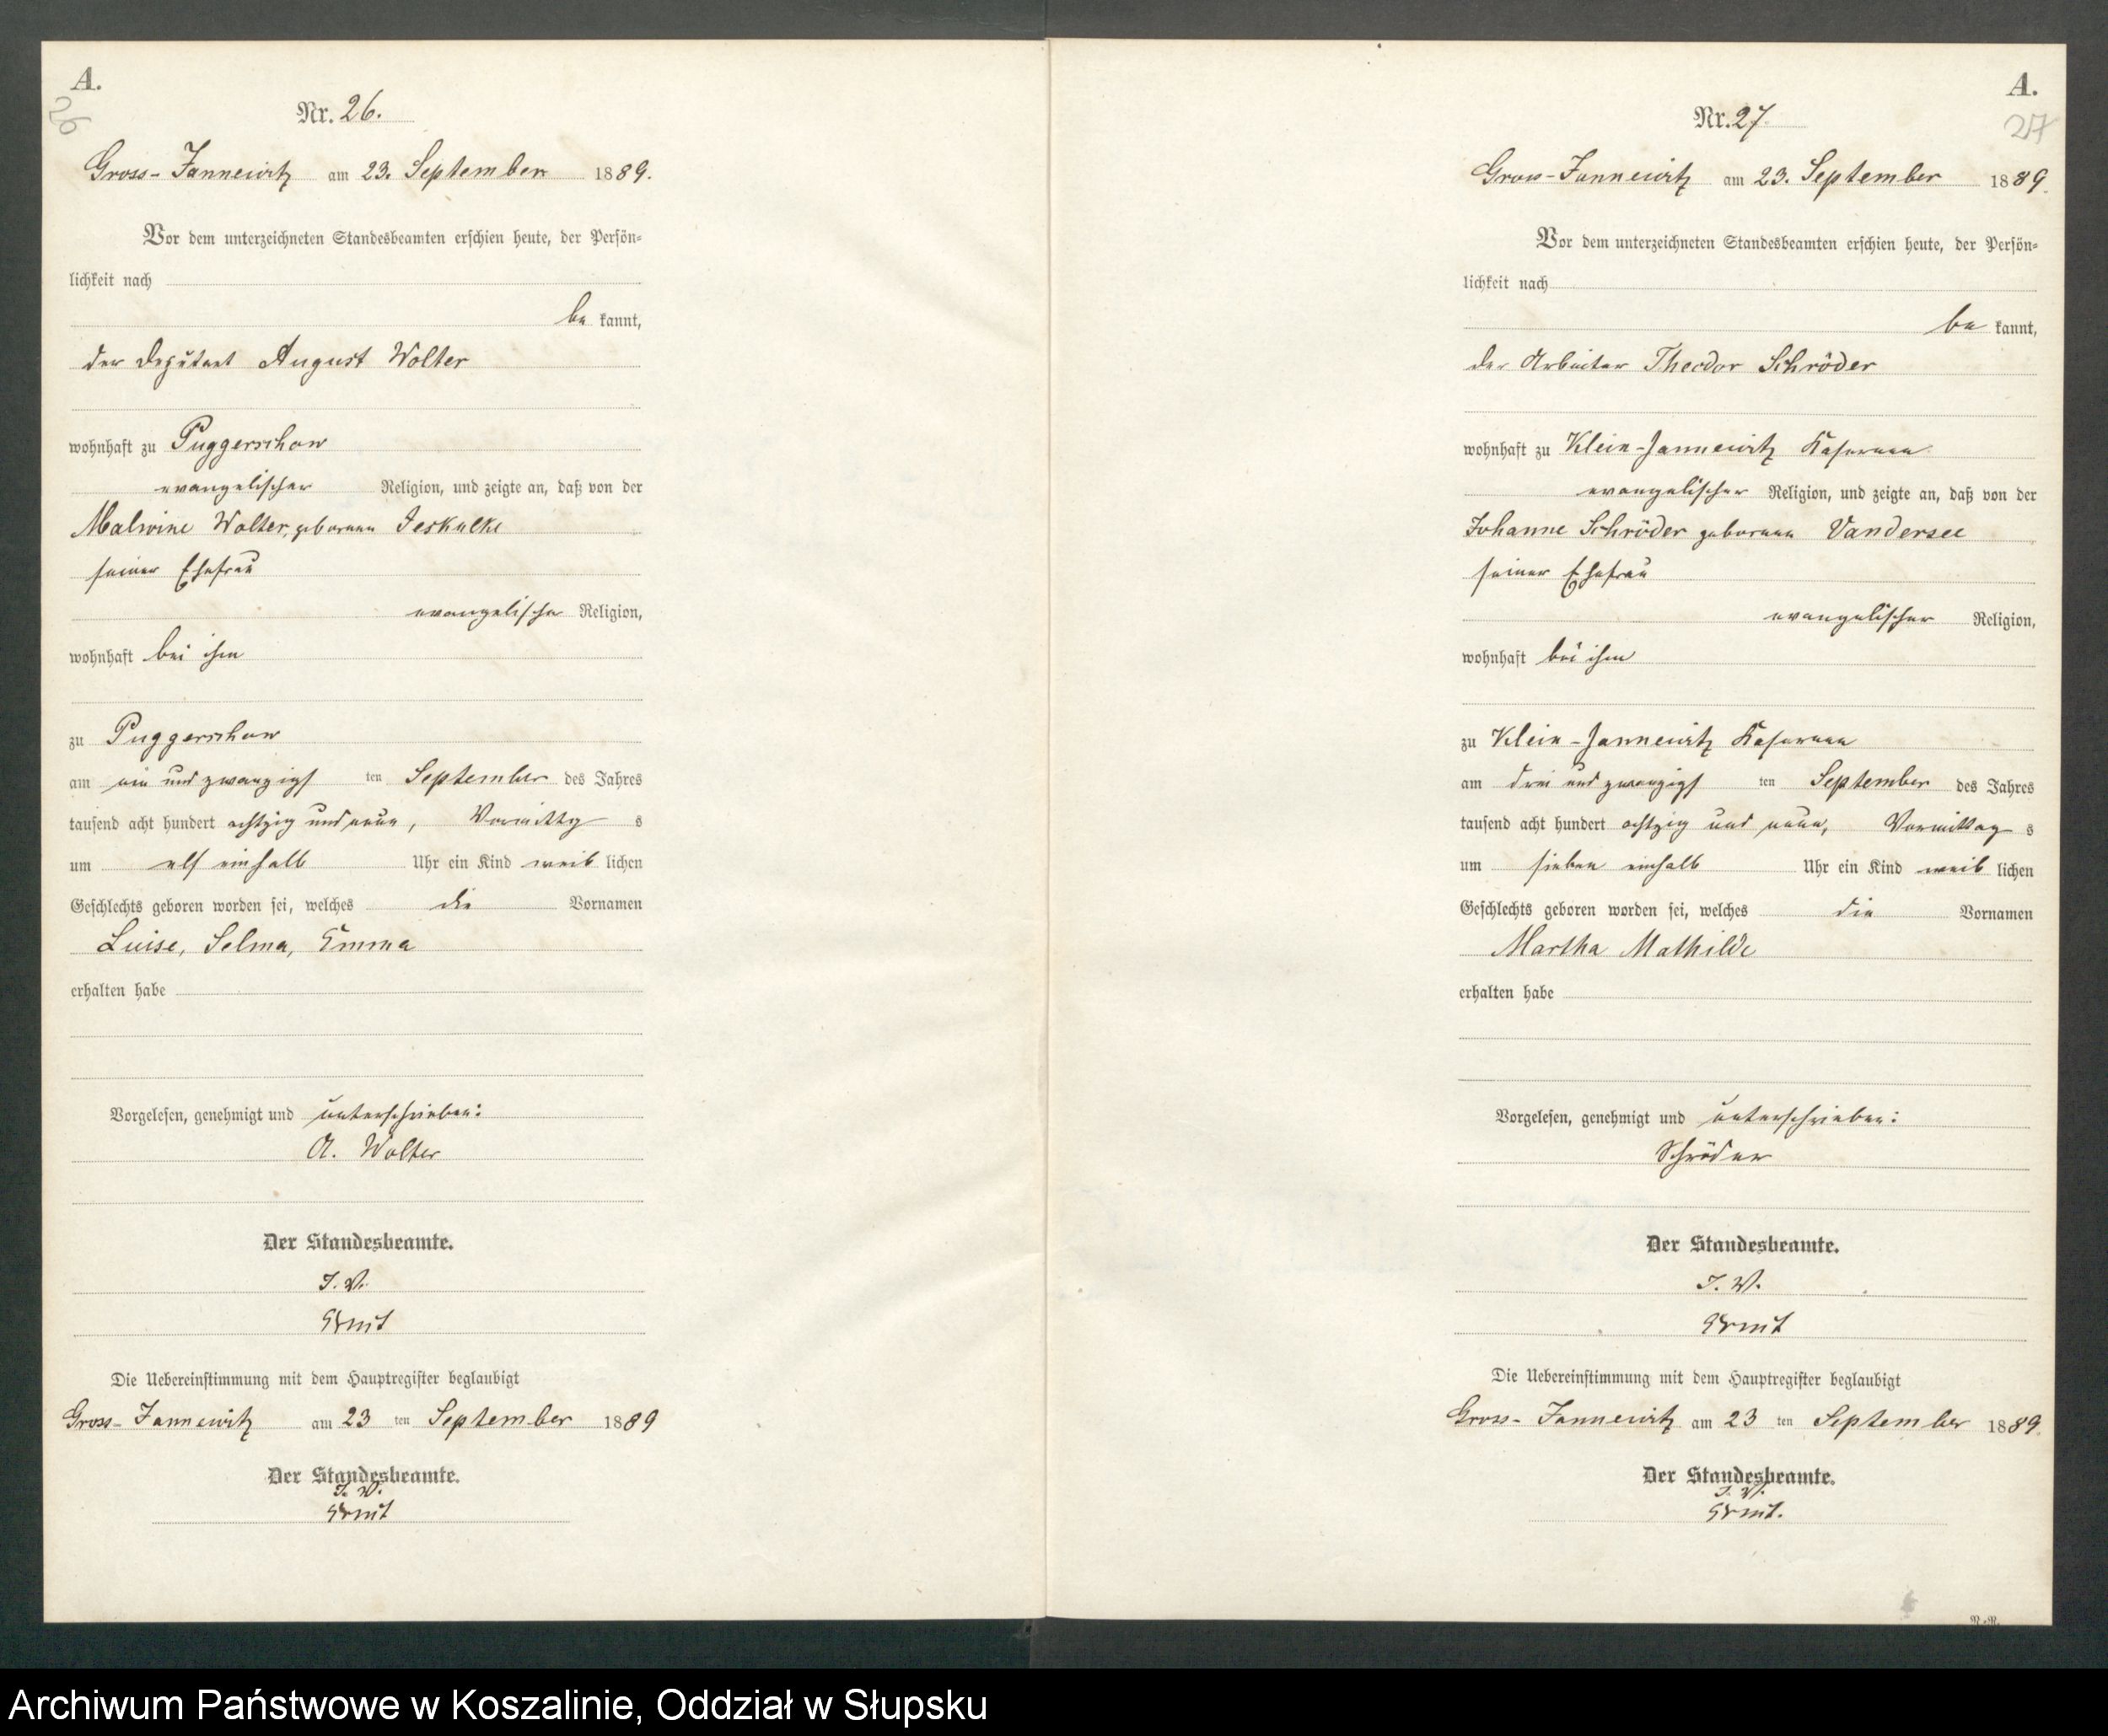 A.
26
Nr. 26.
Gross-Jannewitz am 23. September 1889.
Vor dem unterzeichneten Standesbeamten erschien heute, der Persön-
lichkeit nach
be kannt,
der Deputant August Wolter
wohnhaft zu Puggerschow
evangelischer Religion, und zeigte an, daß von der
Malwine Wolter, geborenen Jeskulke
seiner Ehefrau
evangelischer Religion,
wohnhaft bei ihm
zu Puggerschow
am ein und zwanzigs ten September des Jahres
tausend acht hundert achtzig und neun, Vormittag s
um elf einhalb Uhr ein Kind weib lichen
Geschlechts geboren worden sei, welches die Vornamen
Luise, Selma, Emma
erhalten habe
Vorgelesen, genehmigt und unterschrieben:
A. Wolter
Der Standesbeamte.
I. V.
Die Uebereinstimmung mit dem Hauptregister beglaubigt
Gross-Jannewitz am 23 ten September 1889
Der Standesbeamte.
I. V.
A.
27
Nr. 27
Gross-Jannewitz am 23. September 1889.
Vor dem unterzeichneten Standesbeamten erschien heute, der Persön-
lichkeit nach
be kannt,
der Arbeiter Theodor Schröder
wohnhaft zu Klein-Jannewitz Kasernen
evangelischer Religion, und zeigte an, daß von der
Johanne Schröder geborenen Vandersee
seiner Ehefrau
evangelischer Religion,
wohnhaft bei ihm
zu Klein-Jannewitz Kasernen
am drei und zwanzigs ten September des Jahres
tausend acht hundert achtzig und neun, Vormittag s
um sieben einhalb Uhr ein Kind weib lichen
Geschlechts geboren worden sei, welches die Vornamen
Martha Mathilde
erhalten habe
Vorgelesen, genehmigt und unterschrieben:
Schröder
Der Standesbeamte.
I. V.
Die Uebereinstimmung mit dem Hauptregister beglaubigt
Gross-Jannewitz am 23 ten September 1889.
Der Standesbeamte.
I. V.
Archiwum Państwowe w Koszalinie, Oddział w Słupsku